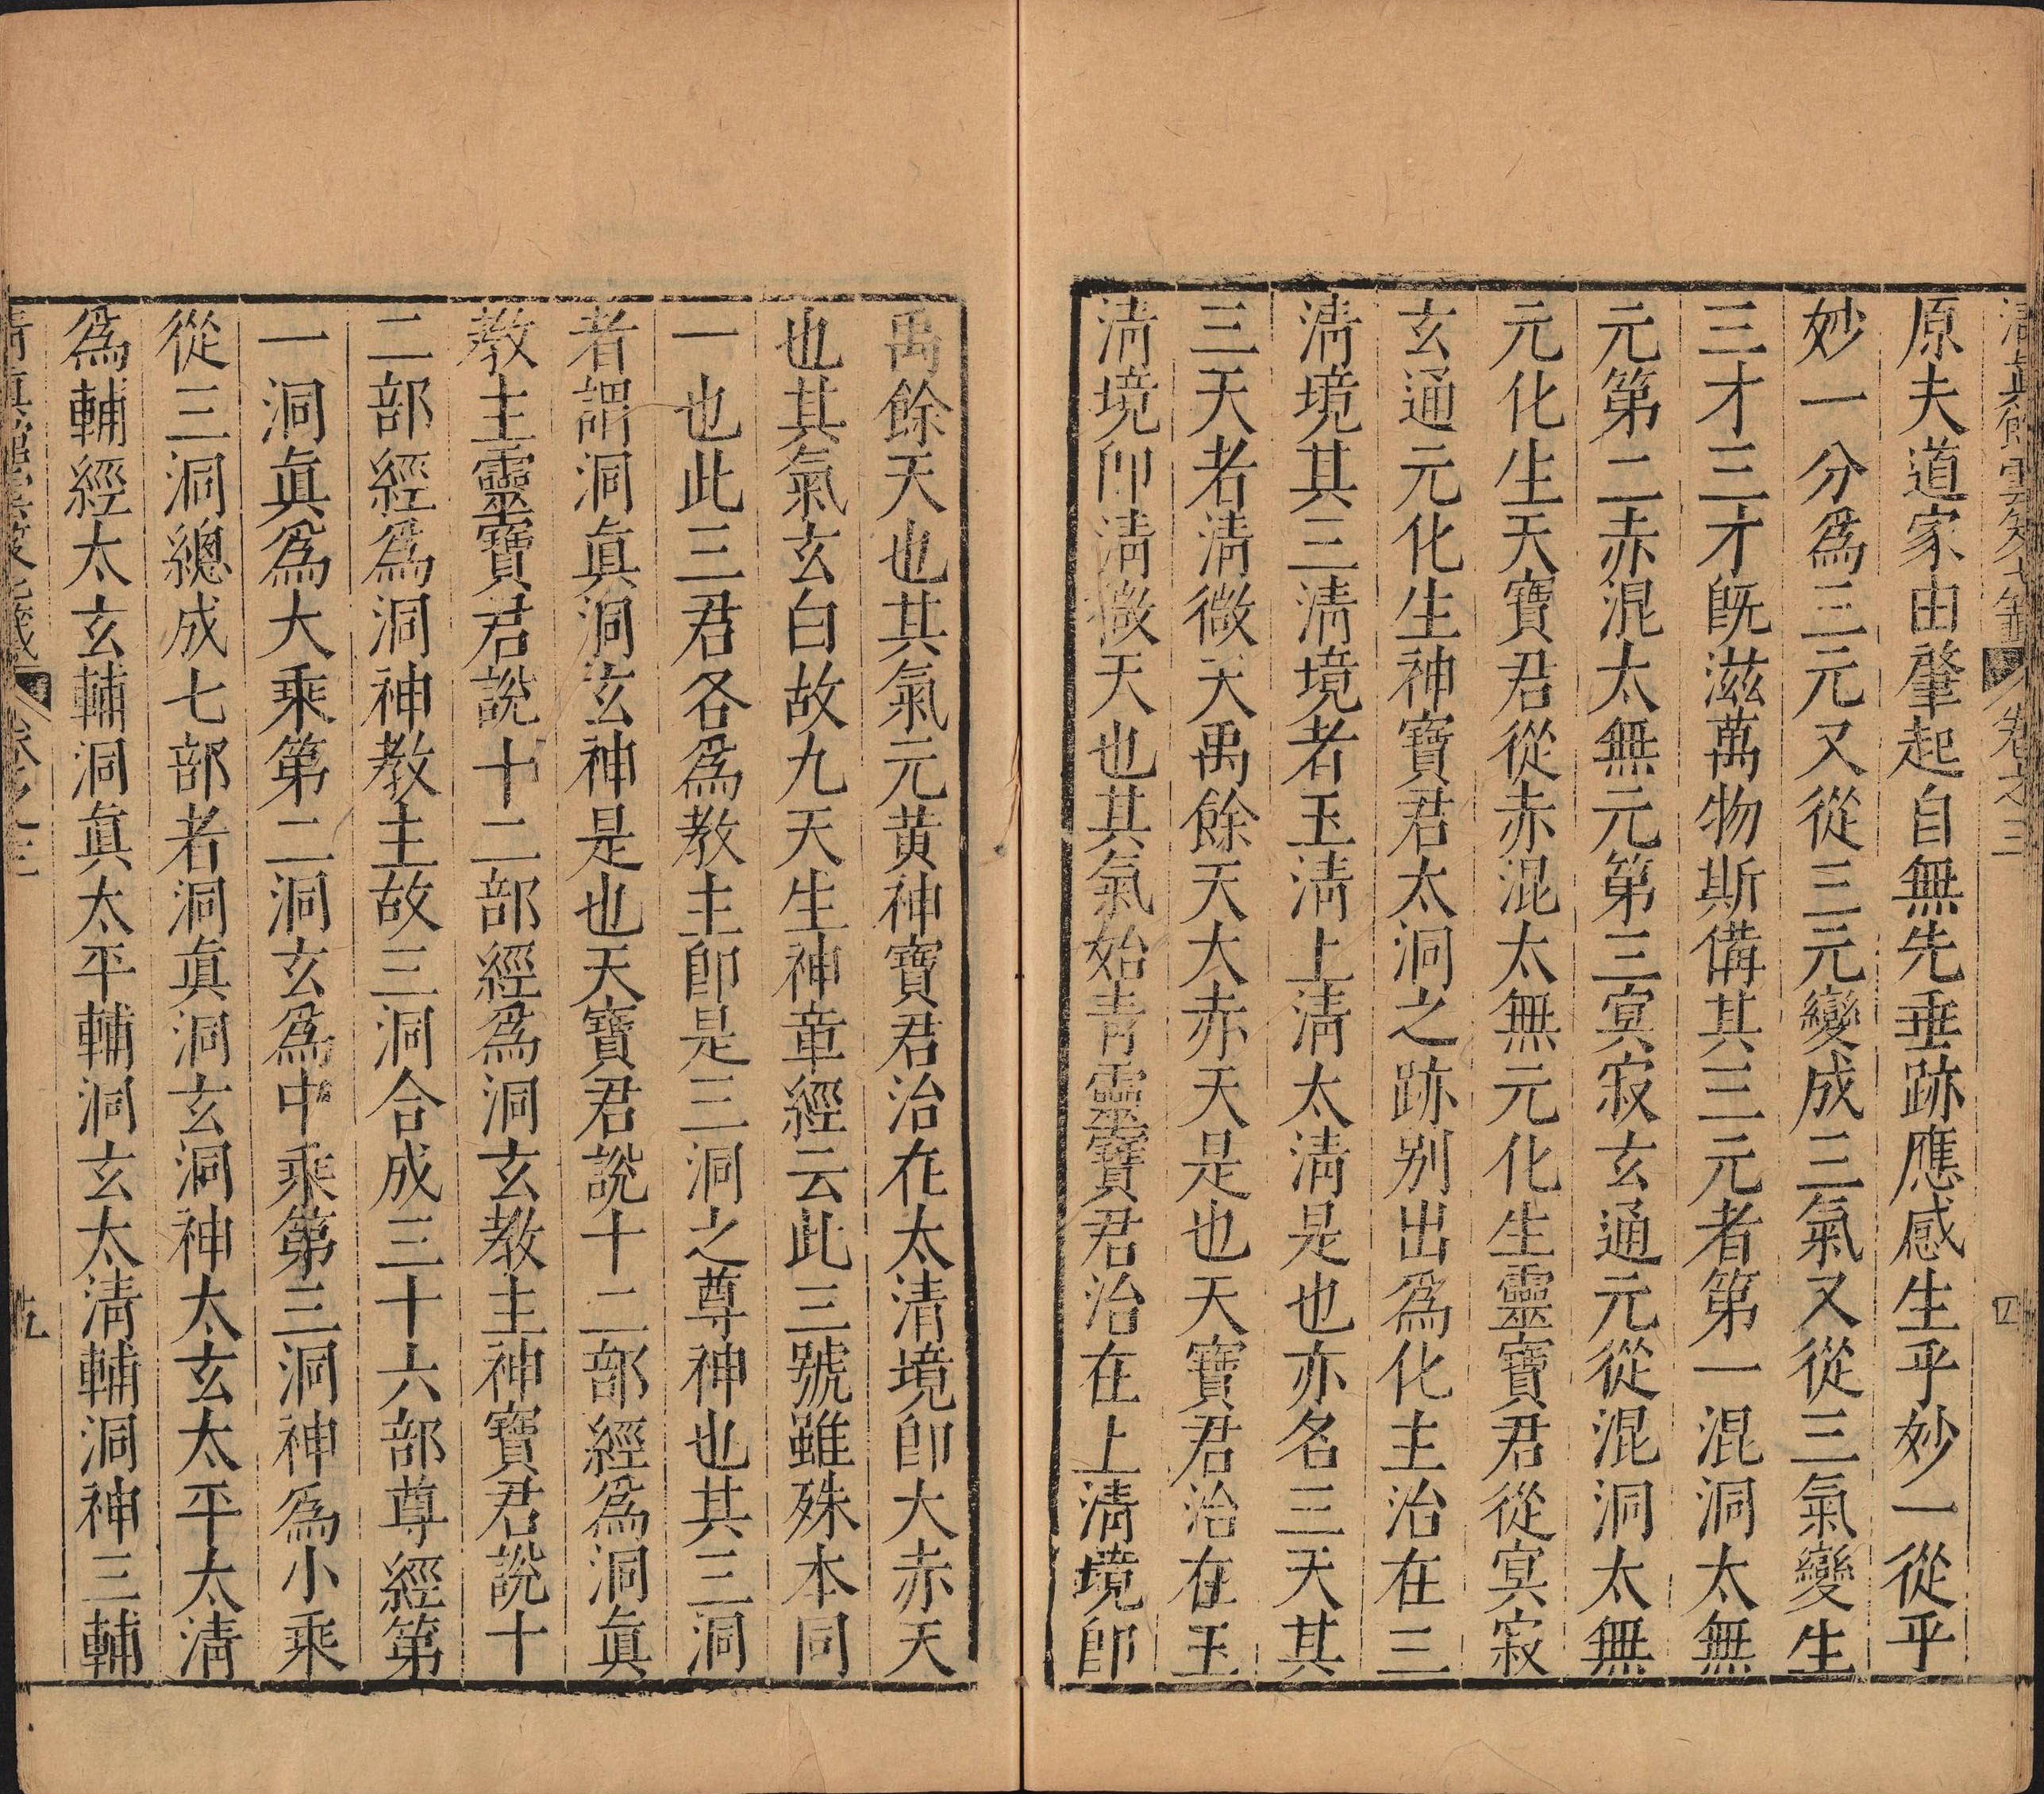 清真館雲笈七籤 卷之三 四
原夫道家由肇起自無先垂跡應感生乎妙一從乎
妙一分爲三元又從三元變成三氣又從三氣變生
三才三才既滋萬物斯備其三元者第一混洞太無
元第二赤混太無元第三冥寂玄通元從混洞太無
元化生天寶君從赤混太無元化生靈寶君從冥寂
玄通元化生神寶君太洞之跡別出爲化主治在三
清境其三清境者玉清上清太清是也亦名三天其
三天者清微天禹餘天大赤天是也天寶君治在玉
清境卽清微天也其氣始青靈寶君治在上清境卽
禹餘天也其氣元黃神寶君治在太清境卽大赤天
也其氣玄白故九天生神章經云此三號雖殊本同
一也此三君各爲教主卽是三洞之尊神也其三洞
者謂洞眞洞玄洞神是也天寶君說十二部經爲洞眞
教主靈寶君說十二部經爲洞玄教主神寶君說十
二部經爲洞神教主故三洞合成三十六部尊經第
一洞眞爲大乘第二洞玄爲中乘第三洞神爲小乘
從三洞總成七部者洞眞洞玄洞神太玄太平太清
爲輔經太玄輔洞眞太平輔洞玄太清輔洞神三輔